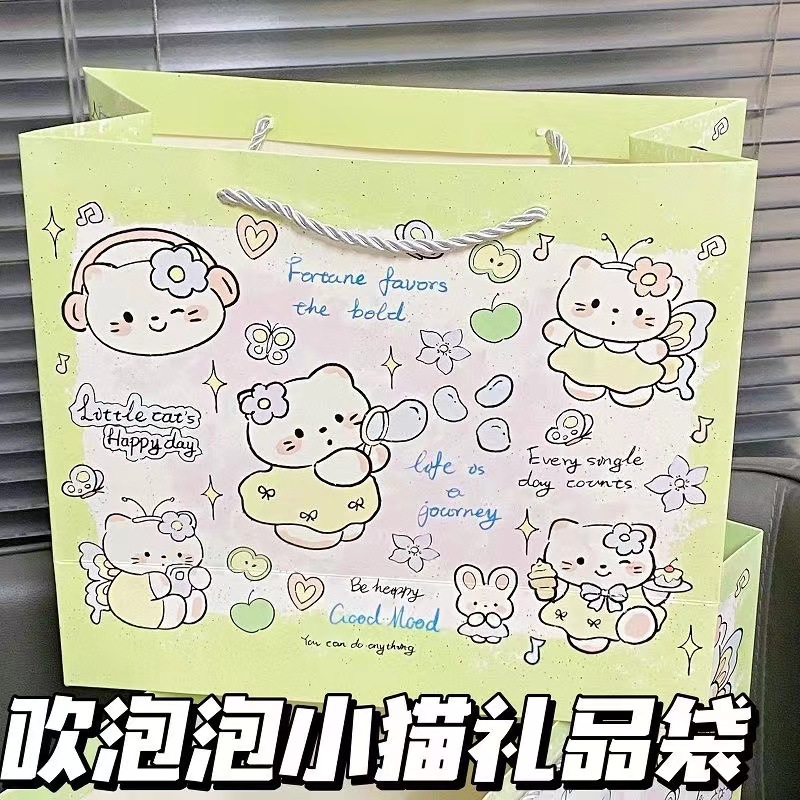 Fortune favors
the bold
Little cat's
Happy day
life is
a
journey
Every single
day counts
Be happy
Good Mood
You can do anything
吹泡泡小猫礼品袋